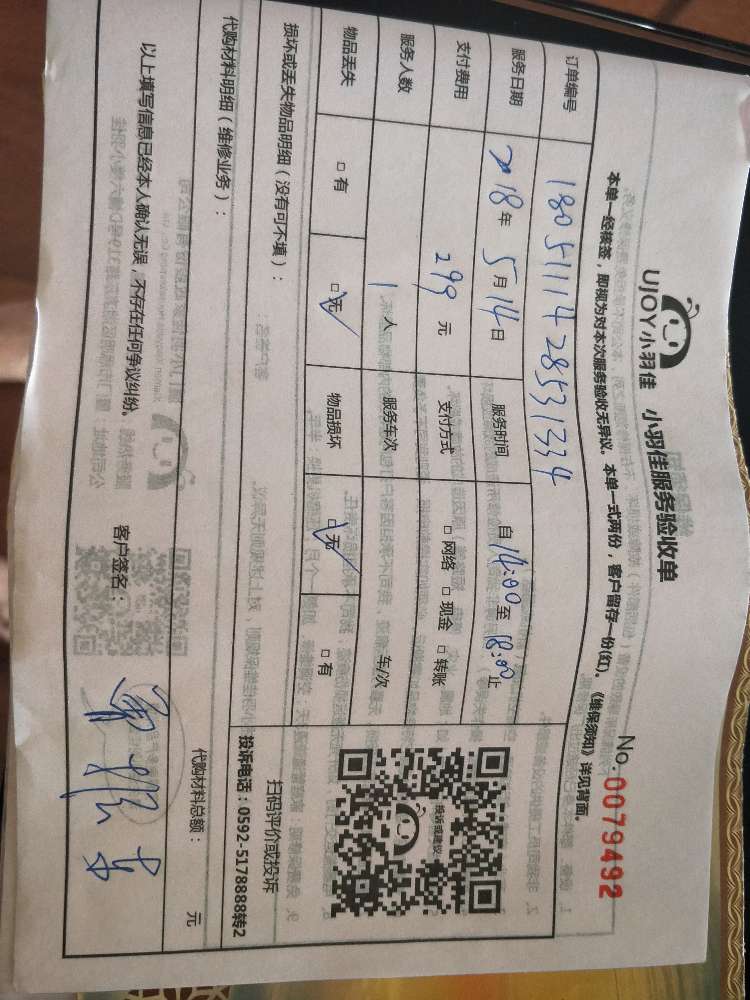 UJOY小羽佳 小羽佳服务验收单
No.0079492
本单一经核签，即视为对本次服务验收无异议。本单一式两份，客户留存一份(红)。《维保须知》详见背面。
订单编号 1805111428531334
服务日期 2018年5月14日 服务时间 自14:00至18:00止
支付费用 299元 支付方式 □网络 □现金 □转账
服务人数 1人 服务车次 车/次
物品丢失 □有 □无 物品损坏 □无 □有
损坏或丢失物品明细（没有可不填）：
投诉或建议
扫码评价或投诉
投诉电话：0592-5178888转2
代购材料明细（维修业务）：
代购材料总额： 元
以上填写信息已经本人确认无误，不存在任何争议纠纷。 客户签名：